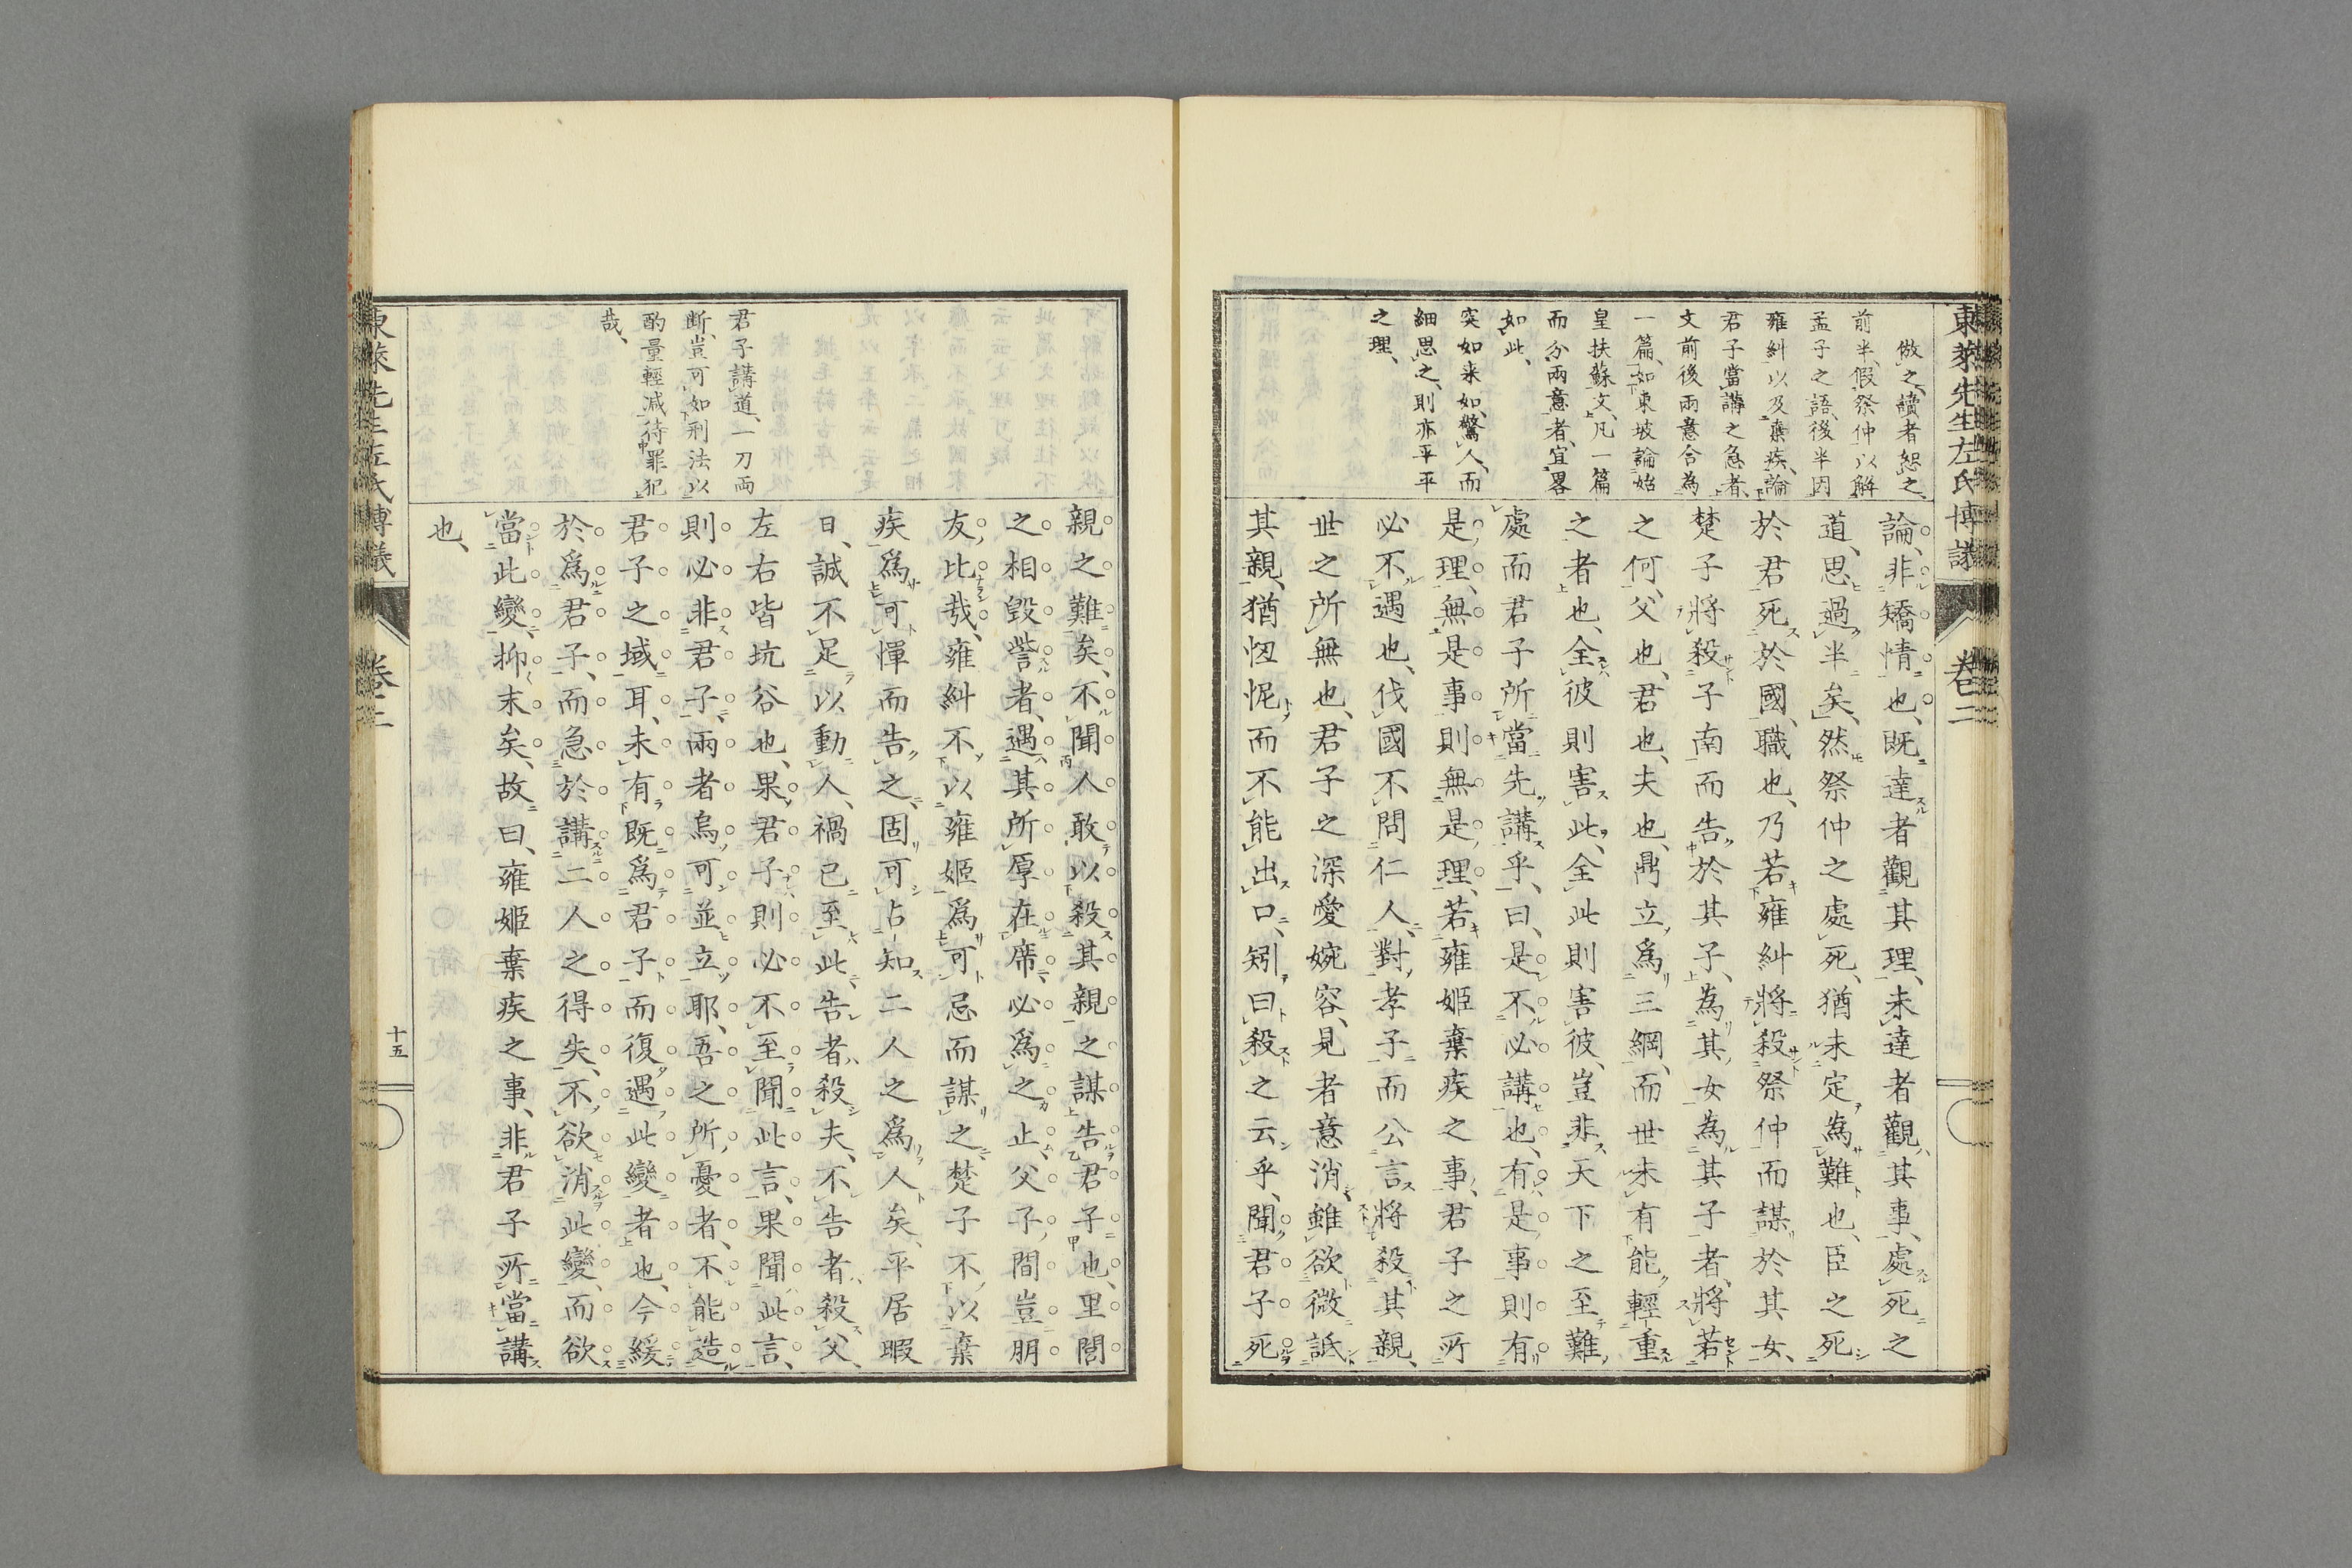 東萊先生左氏博議 卷二
倣之、讀者恕之、
前半、假祭仲以解
孟子之語、後半因
雍糾以及棄疾、論
君子當講之急者、
文前後兩意合為
一篇、如東坡論始
皇扶蘇文、凡一篇
而分兩意者、宜畧
如此、
突如来如、驚人、而
細思之、則亦平平
之理、
論、非矯情也、既達者觀其理、未達者觀其事、處死之
道、思過半矣、然祭仲之處死、猶未定為難也、臣之死
於君死於國、職也、乃若雍糾將殺祭仲而謀於其女、
楚子將殺子南而告於其子、為其女為其子者、將若
之何、父也、君也、夫也、鼎立為三綱、而世未有能輕重
之者也、全彼則害此、全此則害彼、豈非天下之至難
處而君子所當先講乎、曰、是不必講也、有是事則有
是理、無是事則無是理、若雍姬棄疾之事、君子之所
必不遇也、伐國不問仁人、對孝子而公言將殺其親、
世之所無也、君子之深愛婉容、見者意消、雖欲微詆
其親、猶忸怩而不能出口、矧曰殺之云乎、聞君子死
親之難矣、不聞人敢以殺其親之謀告君子也、里閭
之相毀訾者、遇其所厚在席、必為之止、父子間豈朋
友比哉、雍糾不以雍姬為可忌而謀之、楚子不以棄
疾為可憚而告之、固可占知二人之為人矣、平居暇
日、誠不足以動人、禍已至此、告者殺夫、不告者殺父、
左右皆坑谷也、果君子則必不至聞此言、果聞此言、
則必非君子、兩者烏可並立耶、吾之所憂者、不能造
君子之域耳、未有既為君子而復遇此變者也、今緩
於為君子、而急於講二人之得失、不欲消此變、而欲
當此變、抑末矣、故曰、雍姬棄疾之事、非君子所當講
也、
君子講道、一刀兩
断、豈可如刑法以
酌量輕减待罪犯
哉、
東萊先生左氏博議 卷二 十五